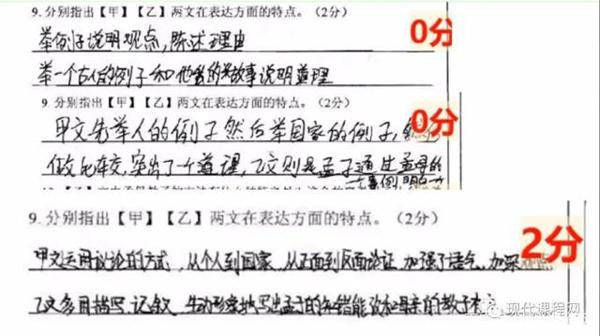 9. 分别指出【甲】【乙】两文在表达方面的特点。（2分）
举例子说明观点，陈述理由
0分
举一个古人的例子和他的故事说明道理
9. 分别指出【甲】【乙】两文在表达方面的特点。（2分）
0分
甲文先举人的例子然后举国家的例子，
做比较，突出了一个道理，乙文则是孟子通过孟母的
9. 分别指出【甲】【乙】两文在表达方面的特点。（2分）
2分
甲文运用议论的方式，从个人到国家，从正面到反面论证，加强了语气，加深
乙文多用描写、记叙，生动形象地写出孟子的知错能改和母亲的教子
现代课程网